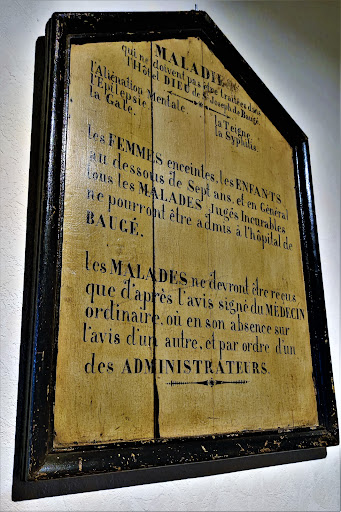 MALADIES
qui ne doivent pas être traitées dans
l'Hôtel DIEU de St Joseph de Baugé.
l'Aliénation Mentale. la Teigne
l'Épilepsie la Syphilis.
la Gale.
les FEMMES enceintes, les ENFANTS
au dessous de Sept ans, et en Général
tous les MALADES Jugés Incurables
ne pourront être admis à l'hôpital de
BAUGÉ.
les MALADES ne devront être reçus
que d'après l'avis signé du MÉDECIN
ordinaire, où en son absence sur
l'avis d'un autre, et par ordre d'un
des ADMINISTRATEURS.